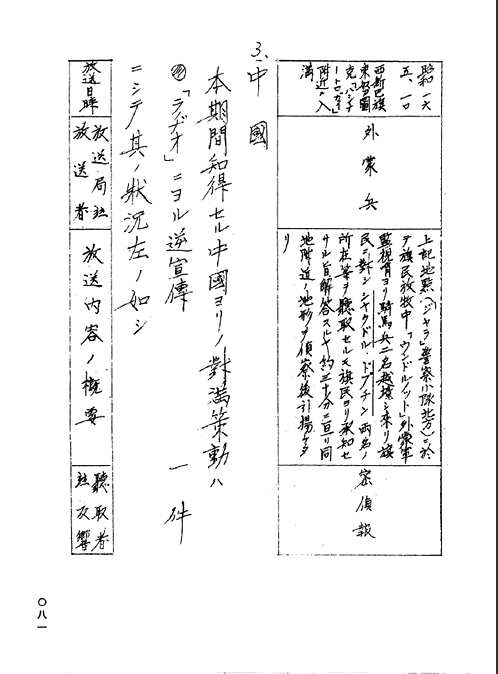 昭和一六
五、一〇
西新巴旗
附近ヘ入
満
外蒙兵
上記地點(「ジャラ」警察小隊地方)ニ於
テ旗民放牧中「ウンドルハット」外蒙軍
監視哨ヨリ騎馬兵二名越境シ来リ旗
民ニ對シシャクドル、ドプチン両名ノ
所在等ヲ聽取セルモ旗民ヨリ承知セ
サル旨解答スルヤ約三十分ニ亘リ同
地附近ノ地形ヲ偵察後引揚ケタ
リ
密偵報
3、中國
本期間知得セル中國ヨリノ對満策動ハ
「ラヂオ」ニヨル逆宣傳 一件
ニシテ其ノ狀況左ノ如シ
放送日時
放送局並
放送者
放送内容ノ概要
聽取者
並反響
〇八一